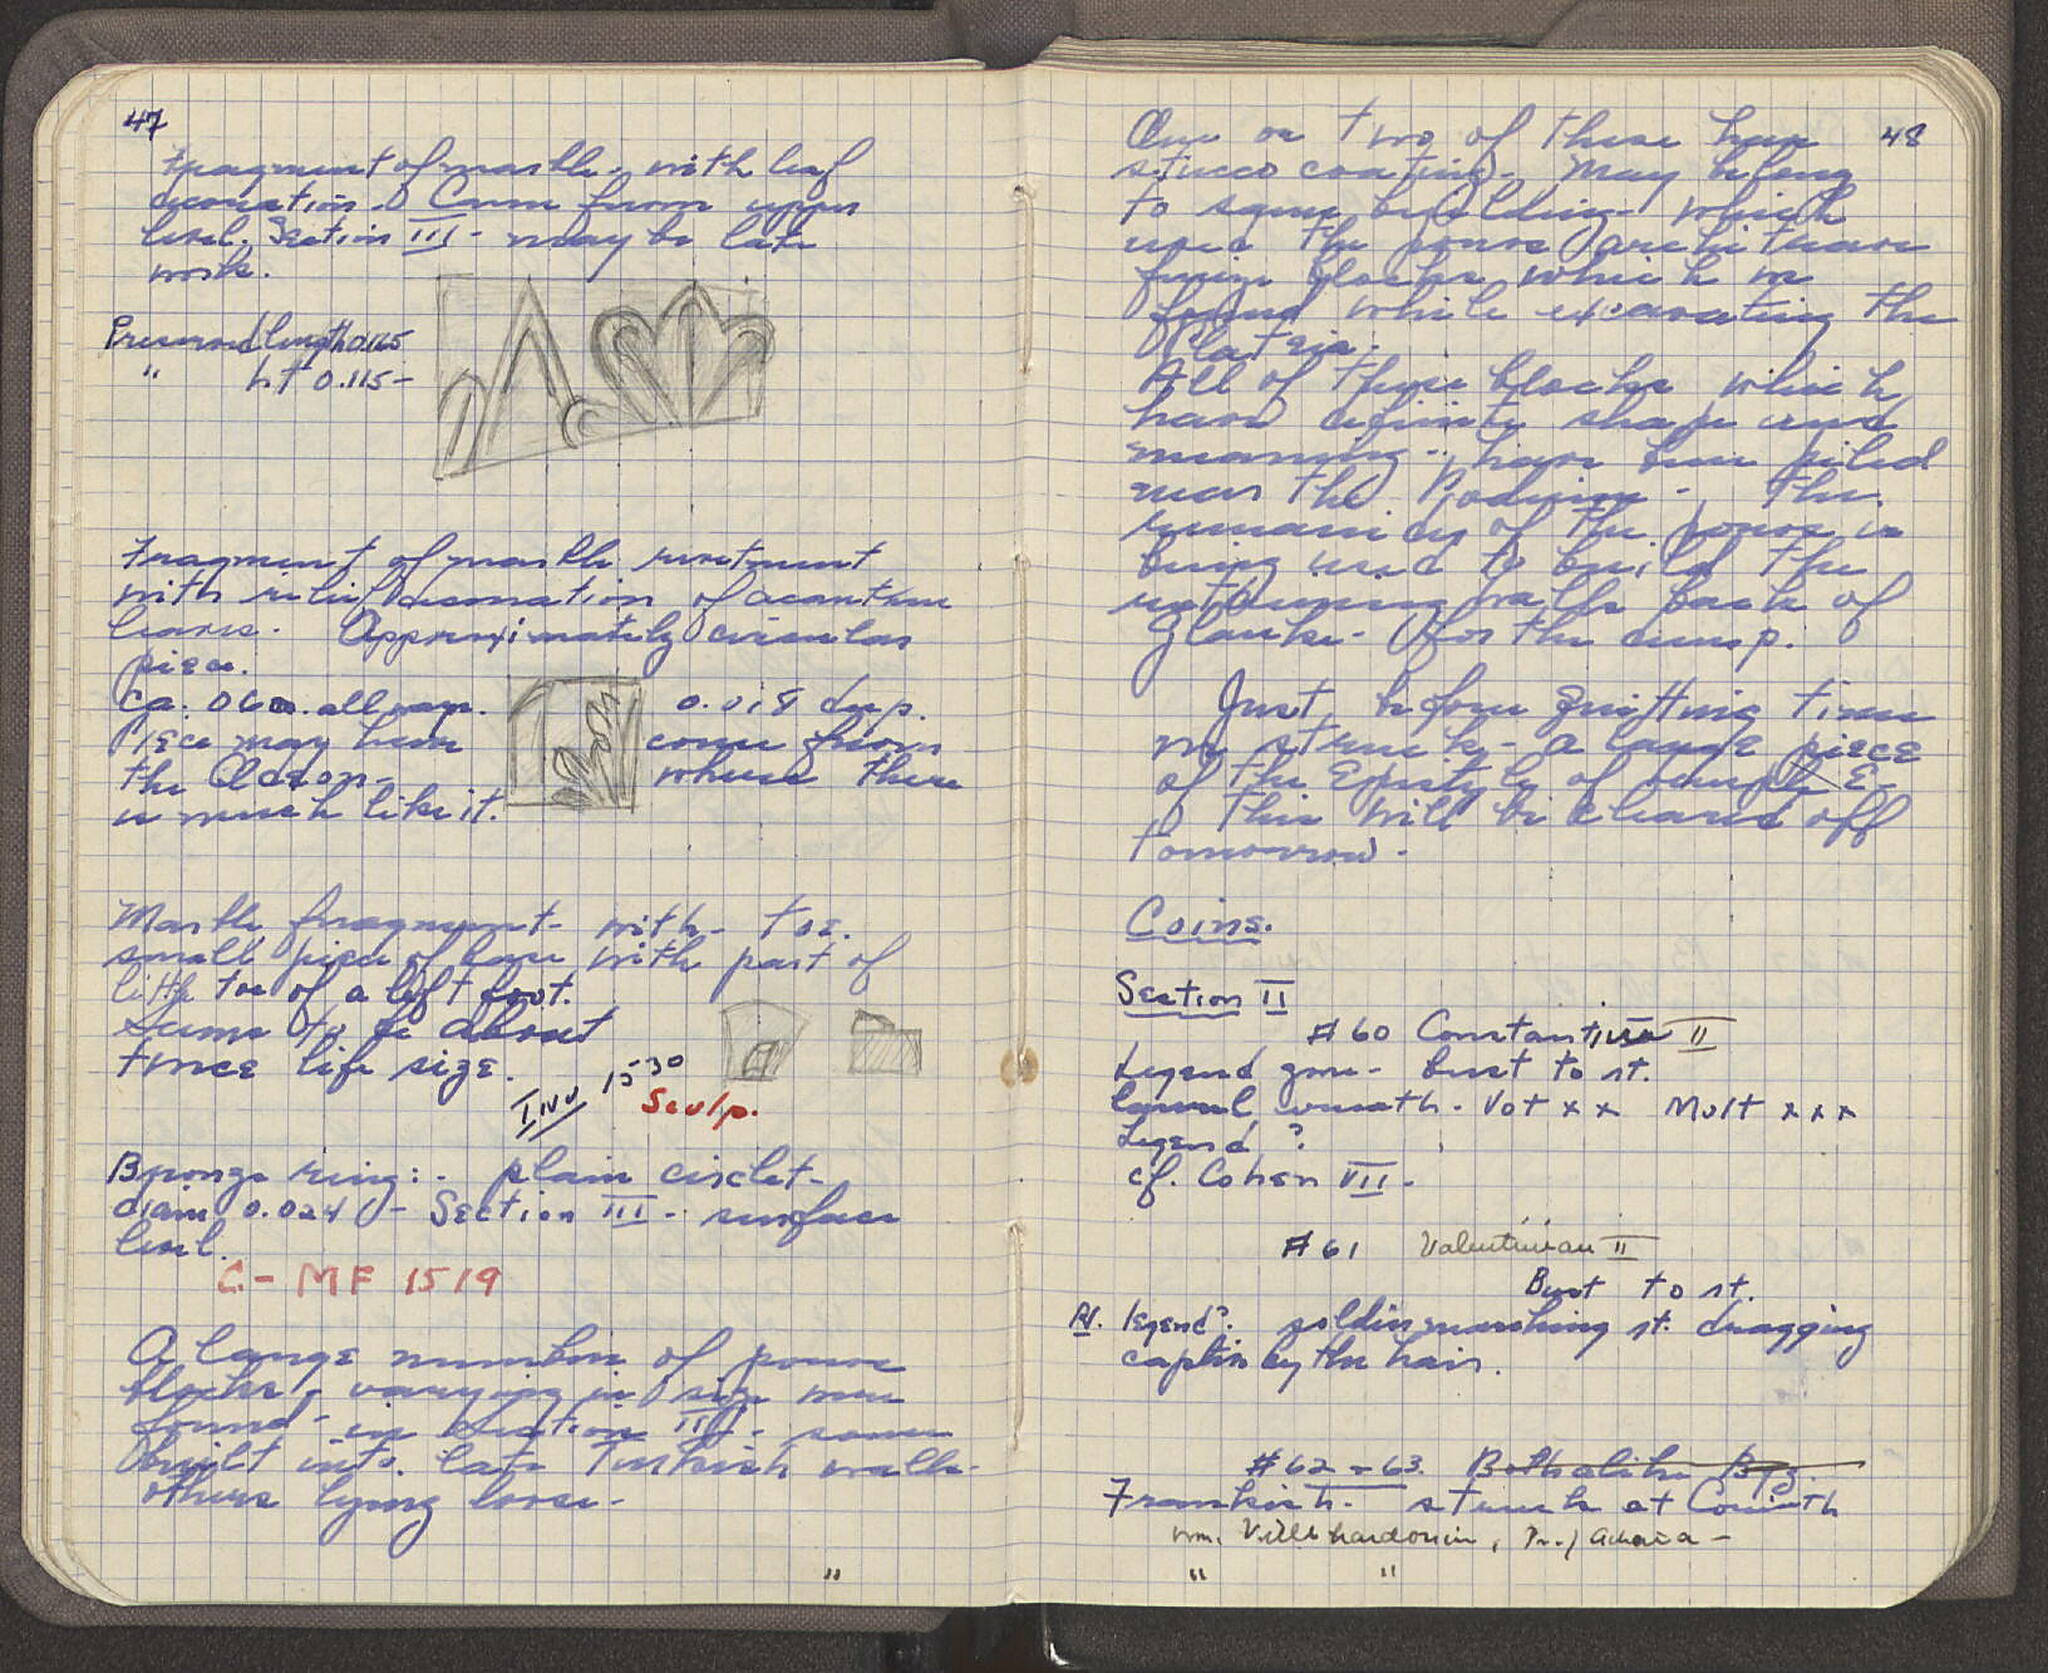 47
Fragment of marble - with leaf
decoration. Came from upper
level. Section III - may be late
work.
Preserved length 0.165
" ht 0.115 -
Fragment of marble revetment
with relief decoration of acanthus
leaves. Approximately circular
piece.
ca. 0.60 all way. 0.018 deep.
Piece may have come from
the Odeon - where there
is much like it.
Marble fragment - with - toe.
small piece of base with part of
little toe of a left foot.
Seems to be about
twice life size.
Inv 1530
Sculp.
Bronze ring: - plain circlet -
diam 0.024 - Section III - surface
level.
C - MF 1519
A large number of poros
blocks, varying in size were
found - in Section III - some
built into late Turkish walls -
others lying loose -
"
48
One or two of these have
stucco coating - May belong
to same building which
used the poros architrave
frieze blocks which we
found while excavating the
Plateia.
All of these blocks which
have definite shape and
meaning - have been piled
near the Podium - the
remainder of the poros is
being used to build the
retaining walls back of
Glauke - for the dump.
Just before quitting time
we struck - a large piece
of the Epistyle of temple E -
This will be cleared off
tomorrow -
Coins.
Section II
# 60 Constantius II
Legend gone - bust to rt.
laurel wreath - Vot x x Mult x x x
Legend ?
cf. Cohen VII -
# 61 Valentinian II
Bust to rt.
Rv. legend? soldier marching rt. dragging
captive by the hair.
# 62 - 63 Both alike Byz.
Frankish - struck at Corinth
Wm. Villehardouin, Pr. / Achaia -
" "